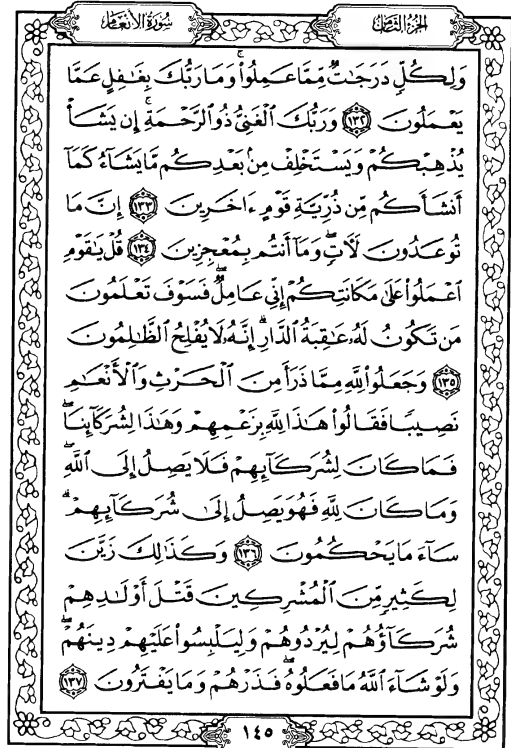 سُورَةُ الأَنْعَامِ
الجُزْءُ الثَّامِنُ
وَلِكُلٍّ دَرَجَٰتٌ مِّمَّا عَمِلُوا۟ ۚ وَمَا رَبُّكَ بِغَٰفِلٍ عَمَّا
يَعْمَلُونَ ١٣٢ وَرَبُّكَ الْغَنِىُّ ذُو الرَّحْمَةِ ۚ إِن يَشَأْ
يُذْهِبْكُمْ وَيَسْتَخْلِفْ مِنۢ بَعْدِكُم مَّا يَشَآءُ كَمَآ
أَنشَأَكُم مِّن ذُرِّيَّةِ قَوْمٍ ءَاخَرِينَ ١٣٣ إِنَّ مَا
تُوعَدُونَ لَءَاتٍ ۖ وَمَآ أَنتُم بِمُعْجِزِينَ ١٣٤ قُلْ يَٰقَوْمِ
اعْمَلُوا۟ عَلَىٰ مَكَانَتِكُمْ إِنِّى عَامِلٌ ۖ فَسَوْفَ تَعْلَمُونَ
مَن تَكُونُ لَهُۥ عَٰقِبَةُ الدَّارِ ۗ إِنَّهُۥ لَا يُفْلِحُ الظَّٰلِمُونَ
١٣٥ وَجَعَلُوا۟ لِلَّهِ مِمَّا ذَرَأَ مِنَ الْحَرْثِ وَالْأَنْعَٰمِ
نَصِيبًا فَقَالُوا۟ هَٰذَا لِلَّهِ بِزَعْمِهِمْ وَهَٰذَا لِشُرَكَآئِنَا ۖ
فَمَا كَانَ لِشُرَكَآئِهِمْ فَلَا يَصِلُ إِلَى اللَّهِ ۖ
وَمَا كَانَ لِلَّهِ فَهُوَ يَصِلُ إِلَىٰ شُرَكَآئِهِمْ ۗ
سَآءَ مَا يَحْكُمُونَ ١٣٦ وَكَذَٰلِكَ زَيَّنَ
لِكَثِيرٍ مِّنَ الْمُشْرِكِينَ قَتْلَ أَوْلَٰدِهِمْ
شُرَكَآؤُهُمْ لِيُرْدُوهُمْ وَلِيَلْبِسُوا۟ عَلَيْهِمْ دِينَهُمْ ۖ
وَلَوْ شَآءَ اللَّهُ مَا فَعَلُوهُ ۖ فَذَرْهُمْ وَمَا يَفْتَرُونَ ١٣٧
١٤٥